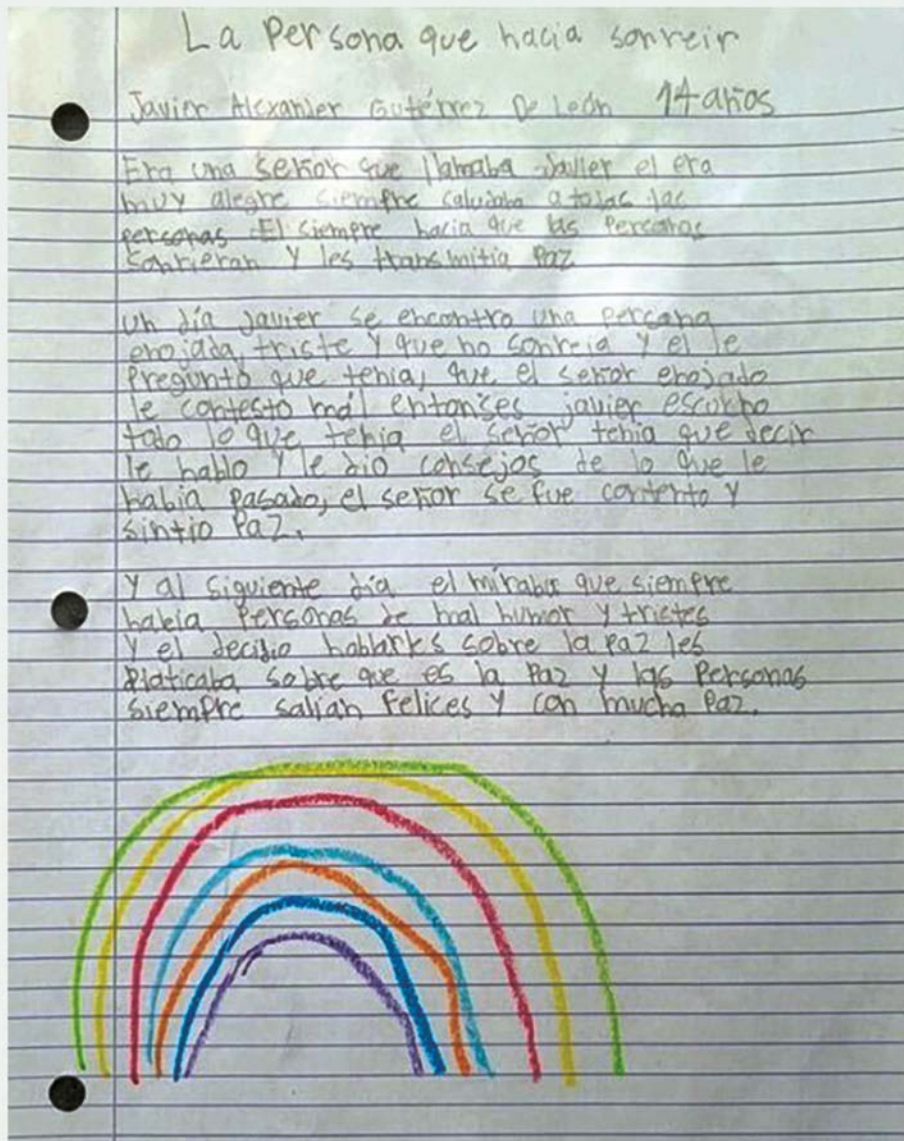 La Persona que hacia sonreir
Javier Alexander Gutérrez De León 14 años
Era una señor que llamaba Javier el era
muy alegre siempre saludaba a todas las
personas El siempre hacia que las Personas
sonrieran y les transmitia Paz
Un día Javier se encontro una persona
enojada, triste y que no sonreia y el le
Pregunto que tenia, que el señor enojado
le contesto mal entonses javier escucho
todo lo que tenia el señor tenia que decir
le hablo y le dio consejos de lo que le
había Pasado, el señor se fue contento y
sintio Paz.
Y al siguiente día el miraba que siempre
había Personas de mal humor y tristes
y el decidio hablarles sobre la paz les
Platicaba sobre que es la Paz y las Personas
siempre salian felices y con mucha Paz.